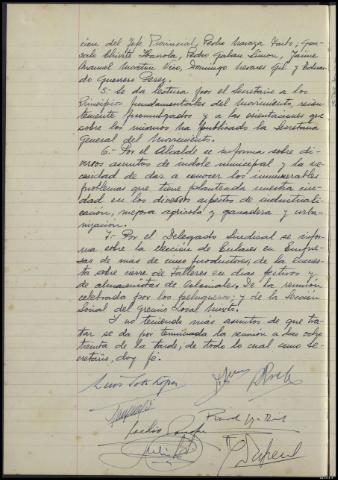 cion del Jefe Provincial, Pedro
Chivite Pedro Galan Simon, Jaime
Manuel Domingo Gil, y
do Guerrero Perez.
5. Se da lectura por el Secretario a los
Principios fundamentales del Movimiento, recien
temente promulgados y a las orientaciones que
sobre los mismos ha publicado la Secretaria
General del Movimiento.
6. Por el Alcalde se informa sobre di
versos asuntos de indole municipal y la ne
cesidad de dar a conocer los innumerables
problemas que tiene planteada nuestra ciu
dad en los diversos aspectos de industriali
zación, mejora agricola y ganadera y urba
nización.
7. Por el Delegado Sindical se infor
ma sobre la elección de Enlaces en Empre
sas de mas de cinco productores; de la encues
ta sobre cierre de talleres en dias festivos y
de almacenistas de Coloniales. De la reunion
celebrada por los peluqueros; y de la Sección
Social del Gremio Local
Y no teniendo mas asuntos de que tra
tar se da por terminada la reunión a las ocho
treinta de la tarde, de todo lo cual como se
cretario, doy fé.